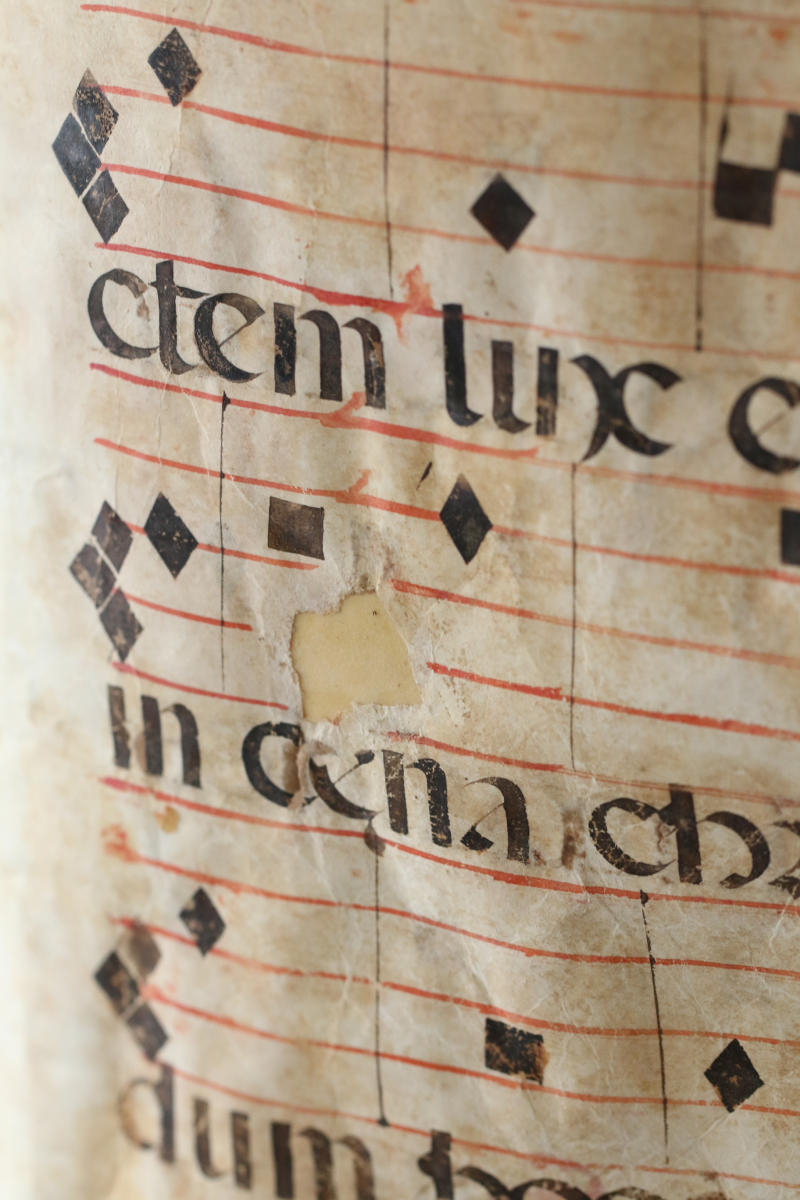 ctem lux e
in cena ch
dum